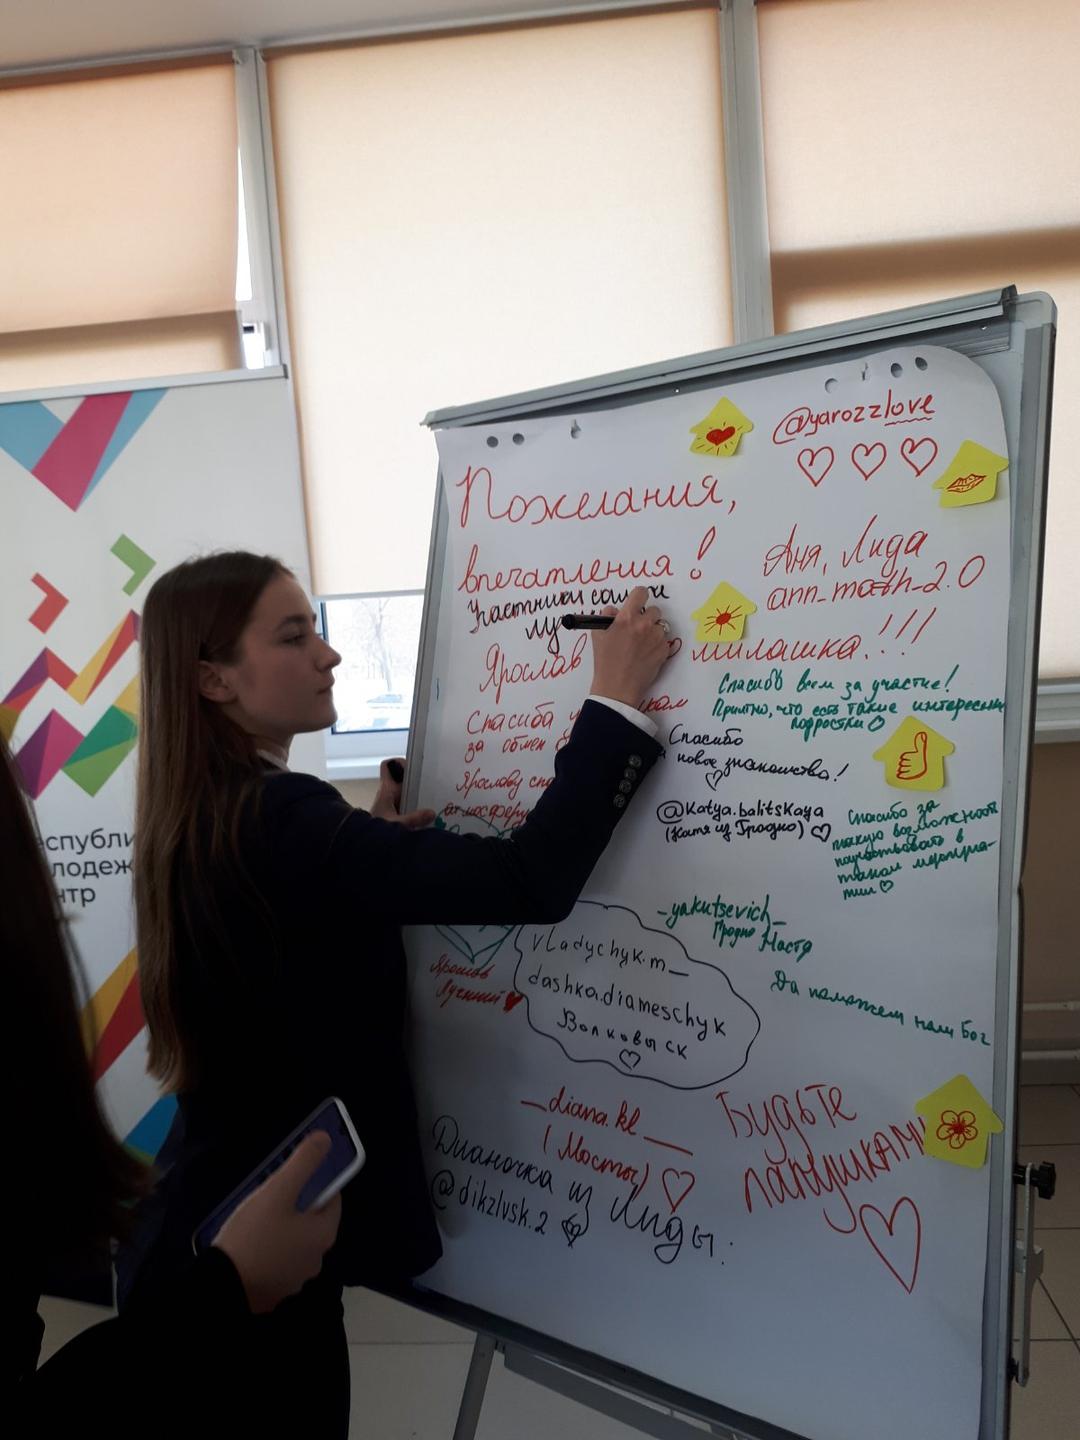 @yarozzlove
Пожелания,
впечатления!
Участники самые
Аня, Лида
ann_math_2.0
Ярослав
милашка!!!
Спасибо всем за участие!
Приятно, что есть такие интересные
подростки
Спасиба
за обмен
Спасибо
новое знакомство!
Ярославу
атмосферу
@katya.balitskaya
(Катя из Гродно)
Спасибо за
такую возможность
поучаствовать в
таком мероприя-
тии
_yakutsevich_
Гродно Настя
vladychyk.m_
dashka.diameschyk
Волковыск
Ярослав
Лучший
Да поможет нам Бог
_diana.kl_
(Мосты)
Дианочка из Лиды.
@dikzlvsk.2
Будьте
лапушками
еспубли
лодеж
нтр